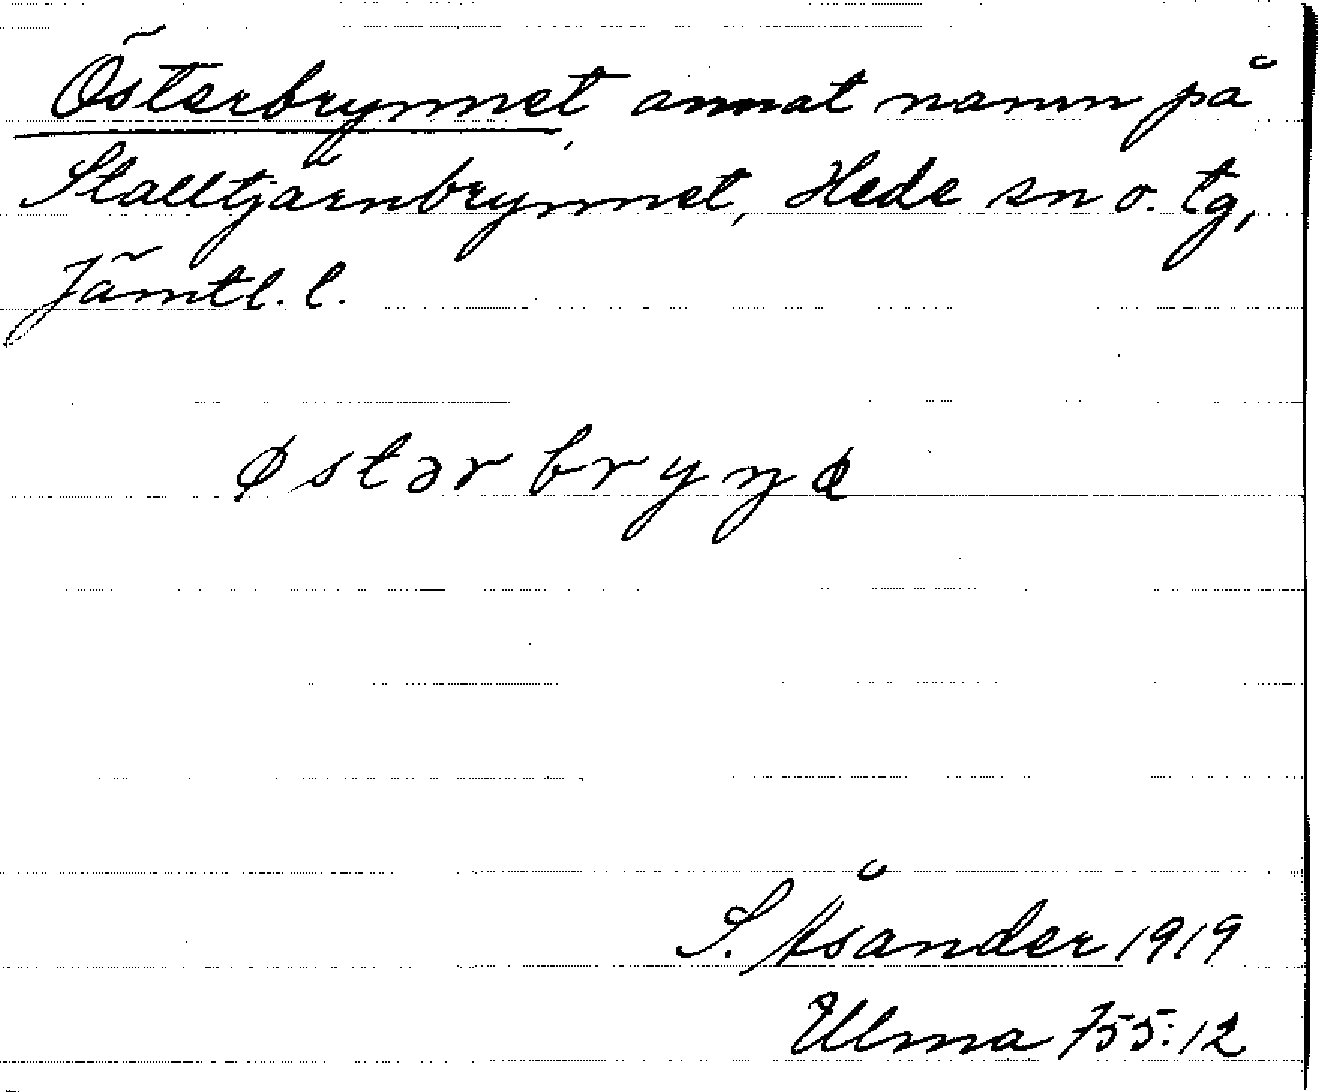 Österbrynnet, annat namn på
Stalltjärnbrynnet, Hede sn o. tg,
Jämtl. l.
østərbryŋə
S. Åsander 1919
Ulma 755:12